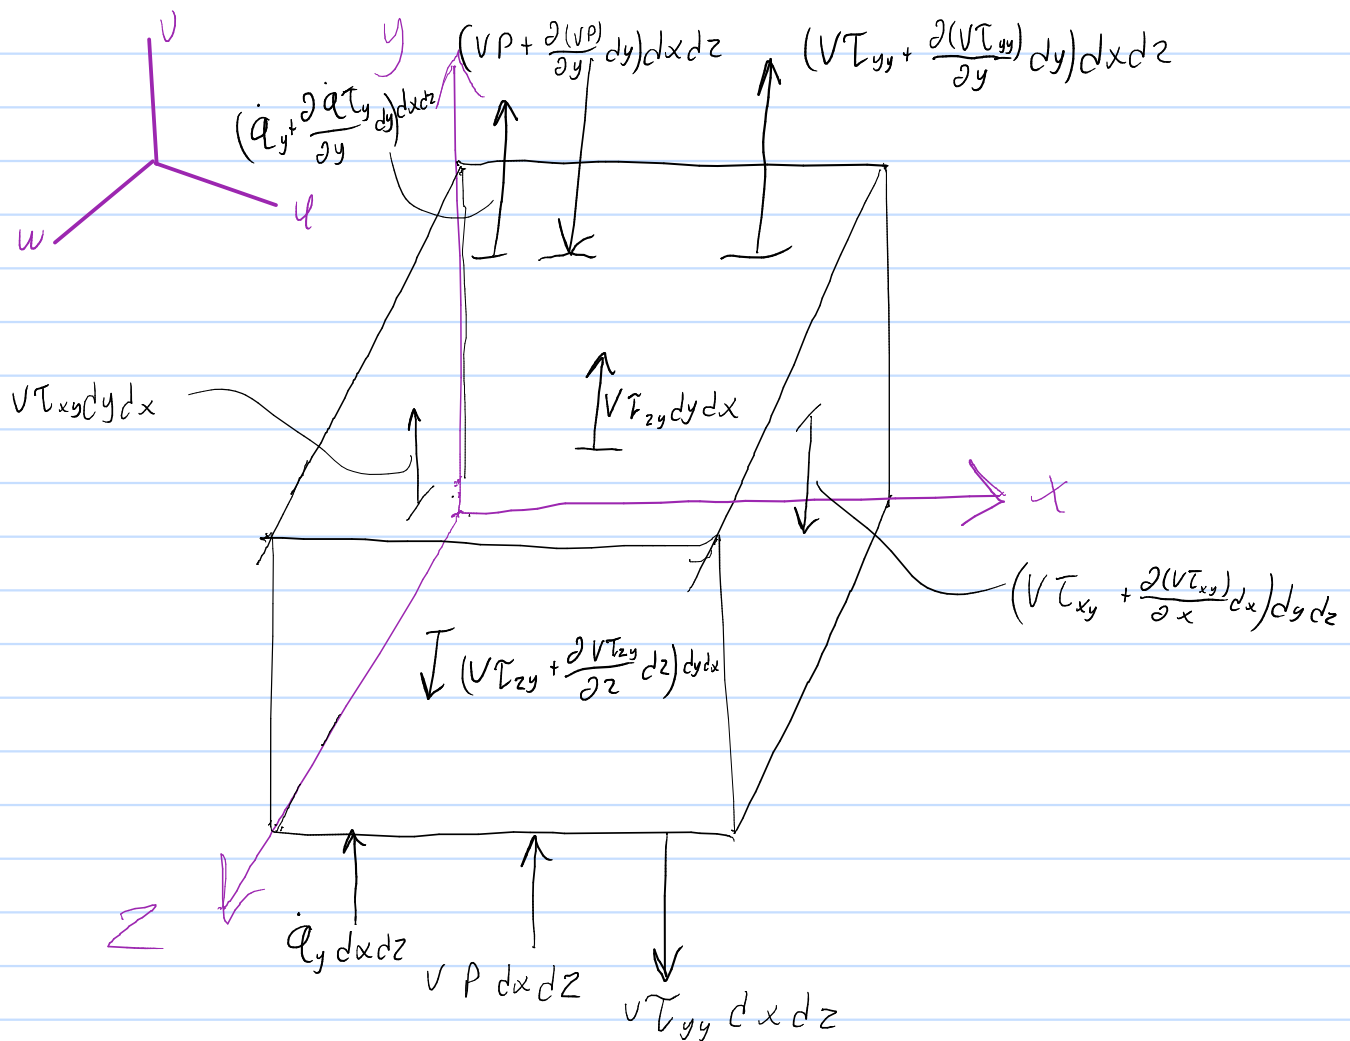 v
y
(VP + ∂(VP)/∂y dy)dxdz
(Vτyy + ∂(Vτyy)/∂y dy)dxdz
(q̇y + ∂q̇τy/∂y dy)dxdz
u
w
Vτxydydx
Vτzydydx
x
(Vτxy + ∂(Vτxy)/∂x dx)dydz
(Vτzy + ∂Vτzy/∂z dz)dydx
z
q̇y dxdz
VP dxdz
Vτyy dxdz